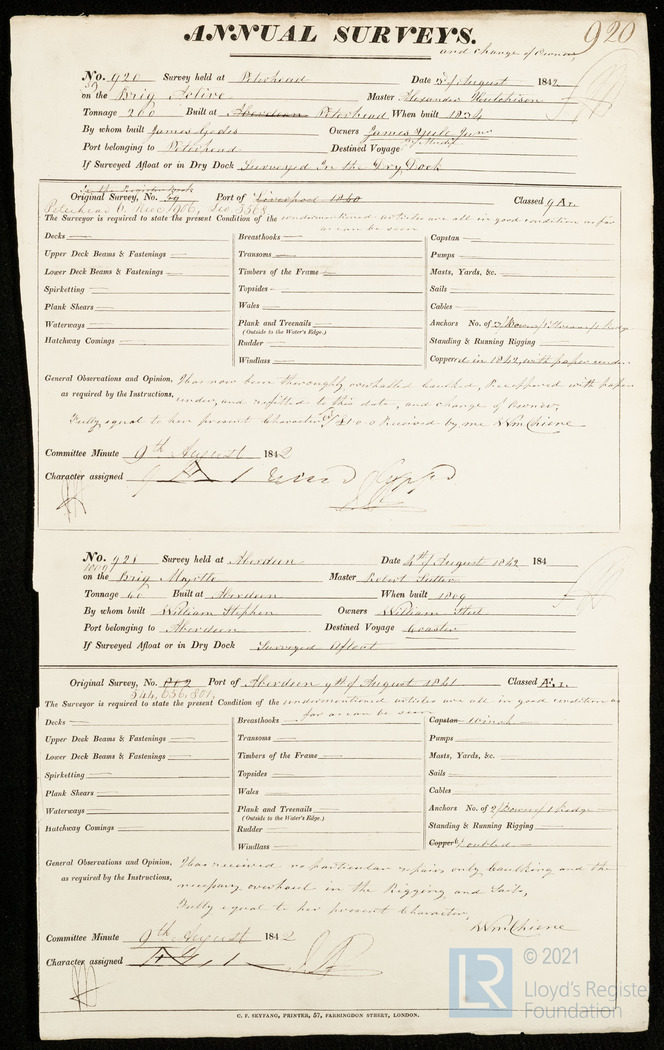 ANNUAL SURVEYS.
and change of Owner
920
No. 920 Survey held at Peterhead Date August 1842
on the Brig Active Master Alexander Hutchison
Tonnage 260 Built at Aberdeen Peterhead When built 1834
By whom built James Geddes Owners James Yule Junr
Port belonging to Peterhead Destined Voyage
If Surveyed Afloat or in Dry Dock Surveyed In the Dry Dock
In the Register Book
Original Survey, No. 59 Port of Liverpool 1840 Classed
Peterhead
The Surveyor is required to state the present Condition of the undermentioned articles are all in good condition as far
as can be seen
Decks Breasthooks Capstan
Upper Deck Beams & Fastenings Transoms Pumps
Lower Deck Beams & Fastenings Timbers of the Frame Masts, Yards, &c.
Spirketting Topsides Sails
Plank Shears Wales Cables
Waterways Plank and Treenails Anchors No. of
(Outside to the Water's Edge.)
Hatchway Comings Rudder Standing & Running Rigging
Windlass Coppered in 1842, with paper under
General Observations and Opinion, Has now been thoroughly overhalled caulked, Recoppered with paper
as required by the Instructions, under, and refitted to this date, and change of Owner,
Fully equal to her present Character Received by me Wm Chiene
Committee Minute 9th August 1842
Character assigned
No. 921 Survey held at Aberdeen Date 4th of August 1842 184
on the Brig Myrtle Master Robert
Tonnage 60 Built at Aberdeen When built 1809
By whom built William Stephen Owners William
Port belonging to Aberdeen Destined Voyage Coaster
If Surveyed Afloat or in Dry Dock Surveyed Afloat
Original Survey, No. Port of Aberdeen 9th of August 1841 Classed
544, 656, 801,
The Surveyor is required to state the present Condition of the undermentioned articles are all in good condition as
far as can be seen
Decks Breasthooks Capstan winch
Upper Deck Beams & Fastenings Transoms Pumps
Lower Deck Beams & Fastenings Timbers of the Frame Masts, Yards, &c.
Spirketting Topsides Sails
Plank Shears Wales Cables
Waterways Plank and Treenails Anchors No. of 2 Bowers 1 Kedge
(Outside to the Water's Edge.)
Hatchway Comings Rudder Standing & Running Rigging
Windlass Copper doubled
General Observations and Opinion, Has received no particular repairs only Caulking and the
as required by the Instructions, necessary overhaul in the Rigging and Sails,
Fully equal to her present Character,
Wm Chiene
Committee Minute 9th August 1842
Character assigned
C. F. SEYFANG, PRINTER, 57, FARRINGDON STREET, LONDON.
LR
© 2021
Lloyd's Register
Foundation